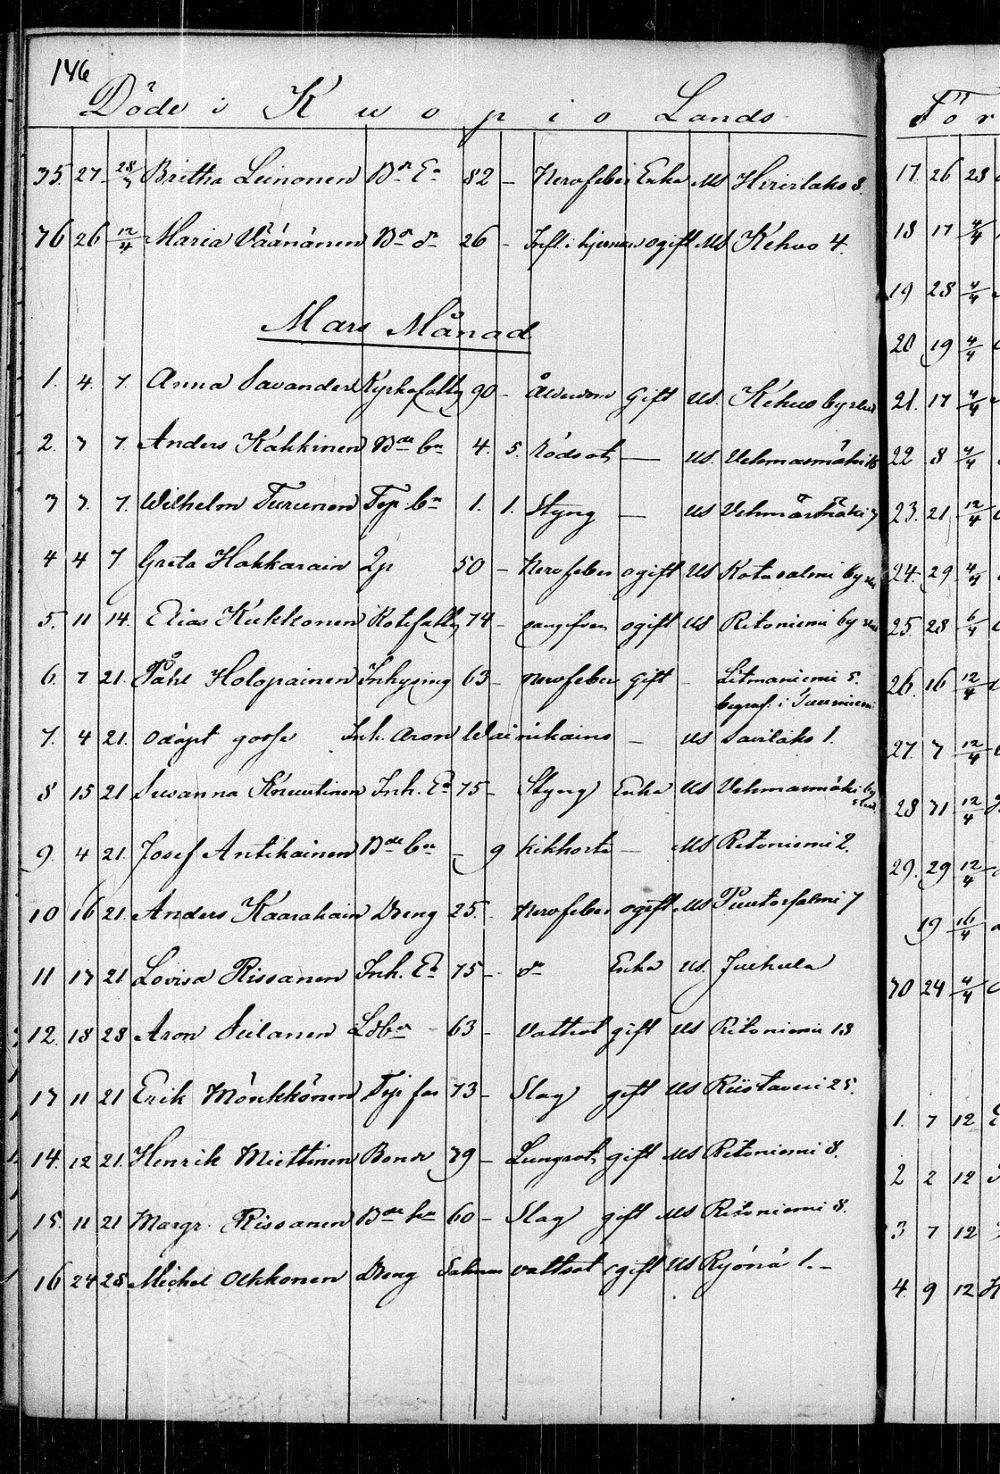 146
Döde i Kuopio Lands
35. 27 28/3 Britha Leinonen Bde Ea 82 - Nervfeber Enka US Hirvilaks 8.
36 26 12/4 Maria Väänänen Bde dr 26 - Infl. i hjernan ogift US Kehvo 4.
Mars Månad
1. 4. 7. Anna Savander Kyrkofattig 90 - Ålderdom gift US. Kehvo by
2. 3 7 Anders Kakkinen Bde bn 4. 5. Rödsot — US. Vehmasmäki 18
3 3. 7. Wilhelm Turunen Torp. bn 1. 1. Styng — US Vehmasmäki 7
4 4 7 Greta Hakkarain Pig 50 - Nervfeber ogift US Kotasalmi by
5. 11 14. Elias Kukkonen Rotefattig 74 - ogift US Ritoniemi by
6. 7 21. Påhl Holopainen Inhysing 63 - Nervfeber gift - Litmaniemi 5.
begraf. i
7. 4 21. odöpt gosse Inh. Aron Wainikains — US Savilaks 1.
8 15 21 Susanna Knuutinen Inh. Ea 75 - Styng Enka US Vehmasmäki by
9. 4 21. Josef Antikainen Bde bn - 9 kikhosta — US Ritoniemi 2.
10 16 21. Anders Kaarakain Dreng 25. Nervfeber ogift US Puutosalmi 7
11 17 21 Lovisa Rissanen Inh. Ea 75 - do Enka US. Juekula
12. 18 28 Aron Siilanen 63 - Vattsot gift US Ritoniemi 13
13 11 21 Erik Mönkkönen Torp far 73 - Slag gift US Riistaveri 25.
14. 12 21. Henrik Miettinen Bonde 39 - Lungsot gift US Ritoniemi 8.
15. 11 21 Margr. Rissanen Bde hu 60 - Slag gift US Ritoniemi 8.
16 24 28 Michel Okkonen Dreng Saknas vattsot ogift US Ryönä 1. -
För
17. 26 28
18 17 4/4
19 28 4/4
20 19 4/4
21. 17 4/4
22 8 4/4
23. 21 12/4
24. 29 4/4
25. 28 6/4
26. 16 12/4
27. 7 12/4
28 31 12/4
29. 29 12/4
19 16/4
30 24 4/4
1. 7 12
2 2 12
3 7 12
4. 9 12